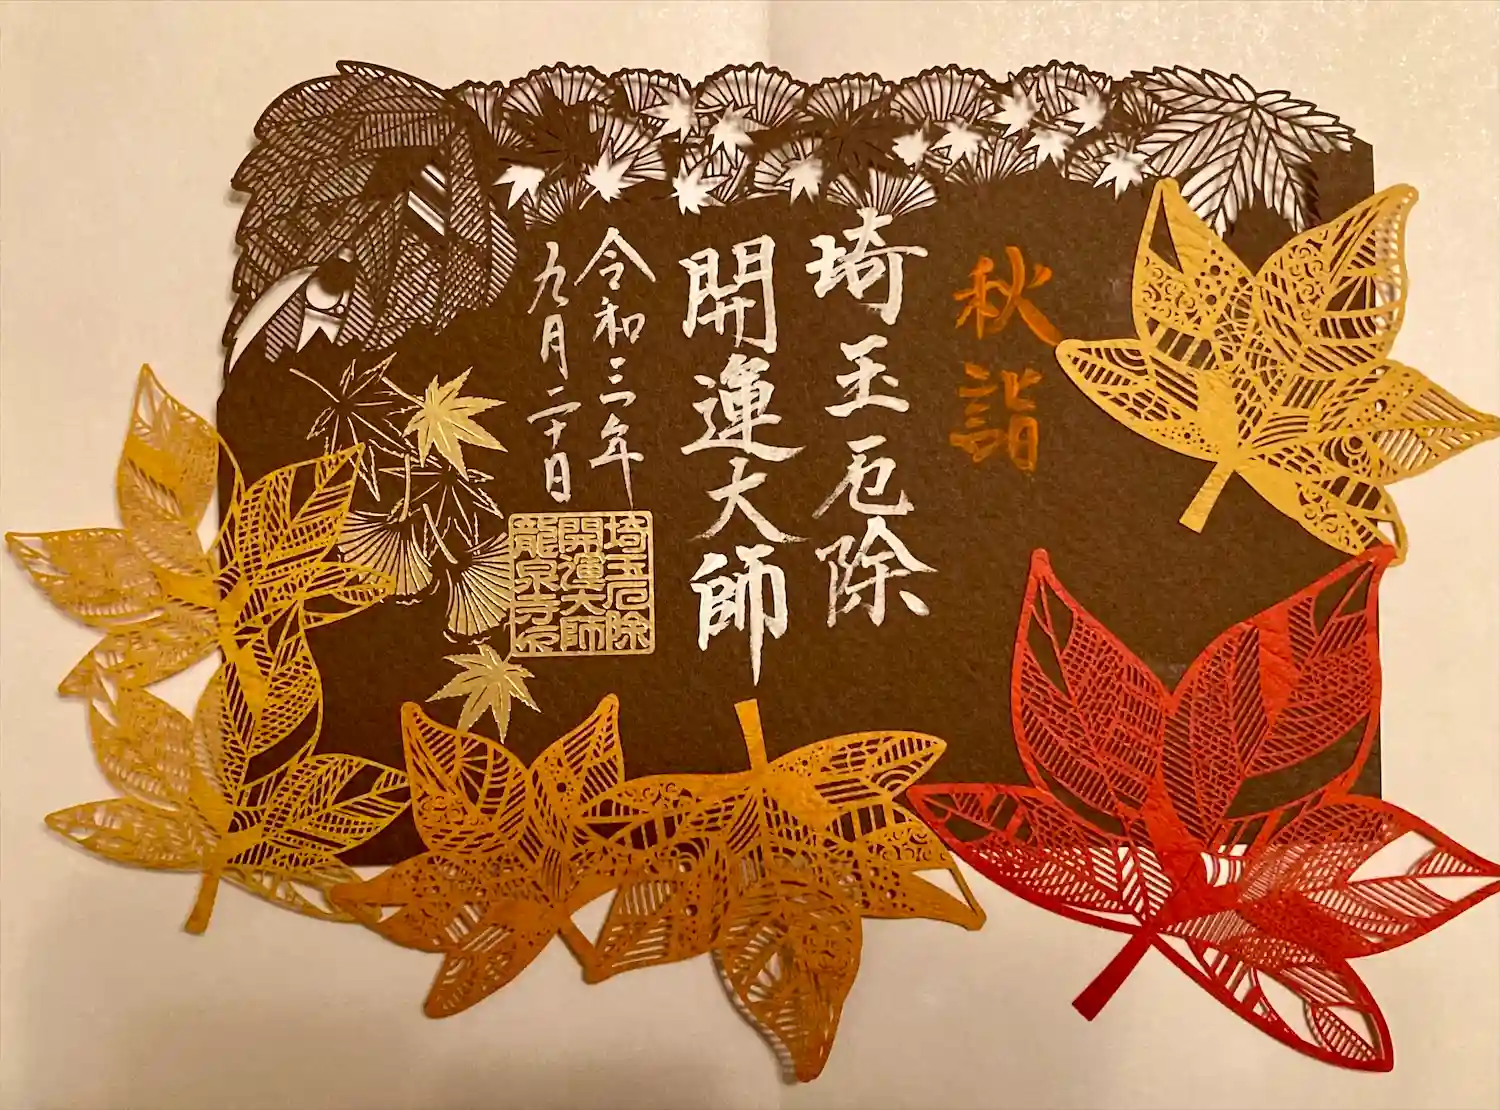 秋詣
埼玉厄除
開運大師
令和三年
九月二十日
埼玉厄除
開運大師
龍泉寺印